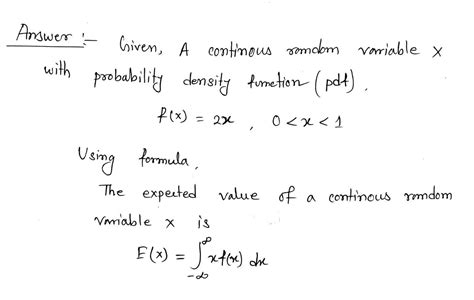 Answer :- Given, A continous random variable X
with probability density function (pdf).
f(x) = 2x , 0 < x < 1
Using formula,
The expected value of a continous random
variable x is
E(x) = ∫_{-∞}^{∞} x f(x) dx